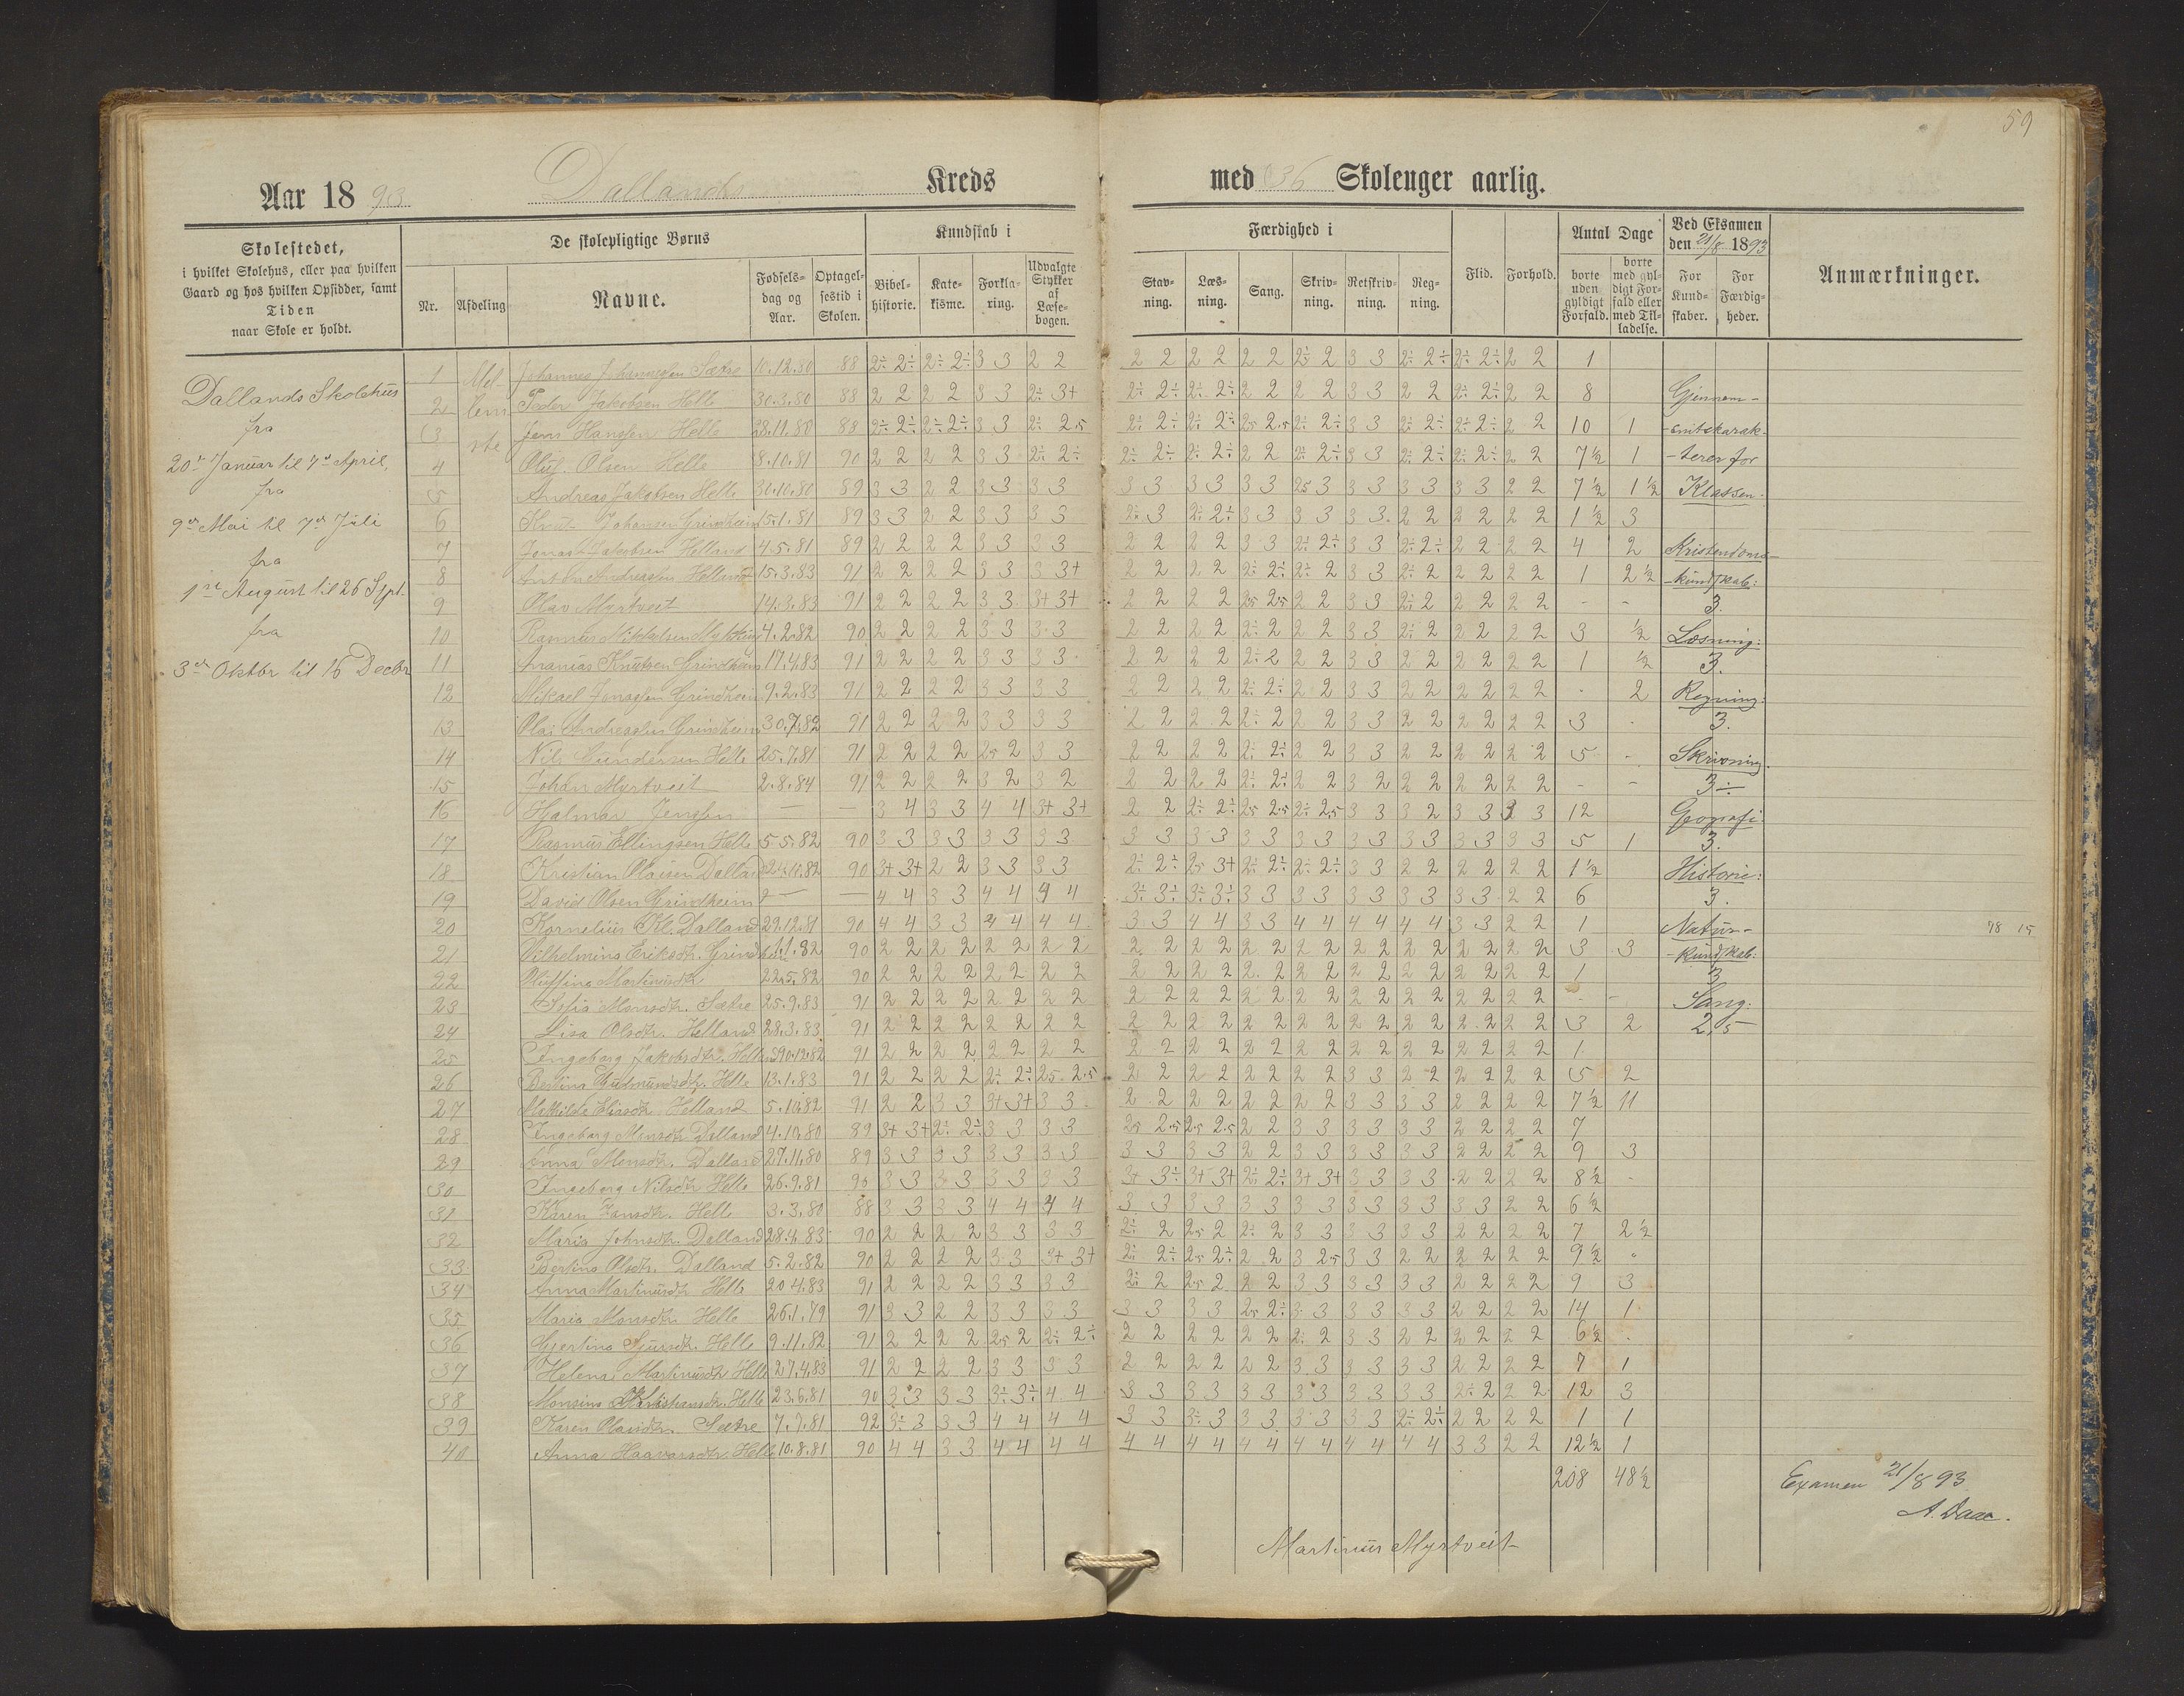 59
Aar 1893 Dallands Kreds med 36 Skoleuger aarlig.
Skolestedet, i hvilket Skolehus, eller paa hvilken Gaard og hos hvilken Opsidder, samt Tiden naar Skole er holdt.
De skolepligtige Børns
Nr. Afdeling Navne. Fødselsdag og Aar. Optagelsestid i Skolen.
Kundskab i
Bibelhistorie. Katekisme. Forklaring. Udvalgte Stykker af Læsebogen.
Færdighed i
Stavning. Læsning. Sang. Skrivning. Retskrivning. Regning.
Flid. Forhold.
Antal Dage
borte uden gyldigt Forfald. borte med gyldigt Forfald eller med Tilladelse.
Ved Eksamen den 21/8 1893
For Kundskaber. For Færdigheder.
Anmærkninger.
Dallands Skolehus
fra
20de Januar til 7de April,
fra
9de Mai til 7de Juli
fra
1ste August til 26 Sept.
fra
3die Oktbr til 16 Decbr
Mel-
lem
ste
1 Johannes Johannessen Sætre 10.12.80 88 2÷ 2÷ 2÷ 2÷ 3 3 2 2 2 2 2 2 2 2 2÷ 2 3 3 2÷ 2÷ 2÷ 2÷ 2 2 1
2 Peder Jakobsen Helle 30.3.80 88 2 2 2 2 3 3 2÷ 3+ 2÷ 2÷ 2÷ 2÷ 2 2 2 2 3 3 2 2 2÷ 2÷ 2 2 8
3 Jens Hansen Helle 28.11.80 88 2÷ 2÷ 2÷ 2÷ 3 3 2÷ 2.5 2÷ 2÷ 2÷ 2÷ 2.5 2.5 2÷ 2÷ 3 3 2÷ 2÷ 2÷ 2÷ 2 2 10 1
4 Oluf Olsen Helle 8.10.81 90 2 2 2 2 3 3 2÷ 2÷ 2÷ 2÷ 2÷ 2÷ 2 2 2÷ 2÷ 3 3 2÷ 2÷ 2÷ 2÷ 2 2 7½ 1
5 Andreas Jakobsen Helle 30.10.80 89 3 3 2 2 3 3 3 3 3 3 3 3 3 3 2.5 3 3 3 3 3 3 3 2 2 7½ 1½
6 Knut Johansen Grindheim 15.1.81 89 3 3 2 2 3 3 3 3 2÷ 3 2÷ 2÷ 3 3 3 3 3 3 2 2 2 2 2 2 1½ 3
7 Jonas Jakobsen Helland 4.5.81 89 2 2 2 2 3 3 3 3 2 2 2 2 3 3 2÷ 2÷ 3 3 2÷ 2÷ 2 2 2 2 4 2
8 Anton Andreassen Helland 15.3.83 91 2 2 2 2 3 3 3 3+ 2 2 2 2 2÷ 2÷ 2÷ 2 3 3 2÷ 2 2 2 2 2 1 2½
9 Olav Myrtveit 14.3.83 91 2 2 2 2 3 3 3+ 3+ 2 2 2 2 2.5 2.5 2 2 3 3 2÷ 2 2 2 2 2 - -
10 Rasmus Mikkelsen 4.2.82 90 2 2 2 2 3 3 3 3 2 2 2 2 2÷ 2 2 2 3 3 2÷ 2 2 2 2 2 3 ½
11 Ananias Knutsen Grindheim 17.4.83 91 2 2 2 2 3 3 3 3 2 2 2 2 2÷ 2 2 2 3 3 2 2 2 2 2 2 1 ½
12 Mikael Jonassen Grindheim 9.2.83 91 2 2 2 2 3 3 3 3 2 2 2 2 2÷ 2÷ 2 2 3 3 2 2 2 2 2 2 - 2
13 Olai Andreassen Grindheim 30.7.82 91 2 2 2 2 3 3 3 3 2 2 2 2 2÷ 2 2 2 3 3 2 2 2 2 2 2 3 -
14 Nils Gundersen Helle 25.7.81 91 2 2 2 2 2.5 2 3 3 2 2 2 2 2÷ 2÷ 2 2 3 3 2 2 2 2 2 2 5 -
15 Johan Myrtveit 2.8.84 91 2 2 2 2 3 2 3 2 2 2 2 2 2÷ 2÷ 2 2 3 2 2 2 2 2 2 2 - -
16 Halmar Jensen — — 3 4 3 3 4 4 3+ 3+ 2 2 2÷ 2÷ 2.5 2.5 2÷ 2.5 3 3 3 2 3 3 3 3 12
17 Rasmus Ellingsen Helle 5.5.82 90 3 3 3 3 3 3 3 3 3 3 3 3 3 3 3 3 3 3 3 3 3 3 3 3 5 1
18 Kristian Olaisen Dalland 90 3+ 3+ 2 2 3 3 3 3 2÷ 2÷ 2.5 3+ 2÷ 2÷ 2÷ 2÷ 3 3 2 2 2 2 2 2 1½
19 David Olsen Grindheim — — 4 4 3 3 4 4 4 4 3÷ 3÷ 3÷ 3÷ 3 3 3 3 3 3 3 3 3 3 2 2 6
20 Kornelius Kl. Dalland 29.12.81 90 4 4 3 3 4 4 4 4 3 3 4 4 3 3 4 4 4 4 4 4 3 3 2 2 1
21 Vilhelmine Eriksdtr. Grindheim 90 2 2 2 2 2 2 2 2 2 2 2 2 2 2 2 2 2 2 2 2 2 2 2 2 3 3
22 Martinusdtr 22.5.82 90 2 2 2 2 2 2 2 2 2 2 2 2 2 2 2 2 2 2 2 2 2 2 2 2 1
23 Sofia Monsdtr. Sætre 25.9.83 91 2 2 2 2 2 2 2 2 2 2 2 2 2 2 2 2 2 2 2 2 2 2 2 2 - -
24 Lisa Olsdtr. Helland 28.3.83 91 2 2 2 2 2 2 2 2 2 2 2 2 2 2 2 2 2 2 2 2 2 2 2 2 3 2
25 Ingeborg Jakobsdtr. Helland 91 2 2 2 2 2 2 2 2 2 2 2 2 2 2 2 2 2 2 2 2 2 2 2 2 1
26 Bertina Gudmundsdtr. Helle 13.1.83 91 2 2 2 2 2÷ 2÷ 2.5 2.5 2 2 2 2 2 2 2 2 3 3 2 2 2 2 2 2 5 2
27 Mathilde Eliasdtr Helland 5.10.82 91 2 2 3 3 3+ 3+ 3 3 2 2 2 2 2 2 2 2 3 3 3 3 2 2 2 2 7½ 11
28 Ingeborg Monsdtr Dalland 4.10.80 89 3+ 3+ 2÷ 2÷ 3 3 3 3 2.5 2.5 2.5 2.5 2 2 3 3 3 3 3 3 2 2 2 2 7
29 Anna Monsdtr. Dalland 27.11.80 89 3 3 3 3 3 3 3 3 3 3 3 3 2 2 3 3 3 3 3 3 2 2 2 2 9 3
30 Ingeborg Nilsdtr. Helle 26.9.81 90 3 3 3 3 3 3 3 3 3+ 3÷ 3+ 3+ 2÷ 2÷ 3+ 3+ 3 3 3 3 2 2 2 2 8½ -
31 Karen Hansdtr. Helle 3.3.80 88 3 3 3 3 4 4 4 4 3 3 3 3 3 3 3 3 3 3 3 3 3 3 2 2 6½
32 Maria Johnsdtr. Dalland 28.4.83 90 2 2 2 2 3 3 3 3 2÷ 2 2.5 2 2÷ 2 3 3 3 3 3 3 2 2 2 2 7 2½
33 Bertina Olsdtr. Dalland 5.2.82 90 2 2 2 2 3 3 3+ 3+ 2÷ 2÷ 2.5 2÷ 2 2 3 2.5 3 3 2 2 2 2 2 2 9½ "
34 Anna Martinusdtr Helle 20.4.83 91 2 2 2 2 3 3 3 3 2÷ 2 2.5 2 2 2 3 3 3 3 3 3 2 2 2 2 9 3
35 Maria Monsdtr. Helle 26.1.79 91 3 3 2 2 3 3 3 3 3 3 3 3 2.5 2÷ 3 3 3 3 3 3 2 2 2 2 14 1
36 Gjertina Sjursdtr. Helle 9.11.82 91 2 2 2 2 2.5 2 2÷ 2÷ 2 2 2 2 2 2 2÷ 2 3 3 2 2 2 2 2 2 6½ -
37 Helena Martinusdtr Helle 27.4.83 91 2 2 2 2 3 3 3 3 2 2 2 2 2 2 3 3 3 3 3 3 2 2 2 2 7 1
38 Monsina Kristiansdtr. Helle 23.6.81 90 3 3 3 3 3÷ 3÷ 4 4 3 3 3 3 3 3 3 3 3 3 3 3 2÷ 2 2 2 12 3
39 Karen Olaisdtr. Sætre 7.7.81 92 3÷ 3 3 3 4 4 4 4 3 3 3÷ 3 3 3 3 3 3 3 2÷ 2÷ 2 2 2 2 1 1
40 Anna Haavarsdtr. Helle 10.8.81 90 4 4 3 3 4 4 4 4 4 4 4 4 4 4 4 4 4 4 4 4 3 3 2 2 12½ 1
208 48½
Gjennem-
-snitskarak-
-terer for
Klassen.
Kristendoms-
-kundskab:
3.
Læsning:
3.
Regning:
3.
Skrivning.
3÷
Geografi:
3.
Historie:
3.
Natur-
-kundskab:
3
Sang:
2,5
78 15
Examen 21/8 93
A. Daae.
Martinus Myrtveit